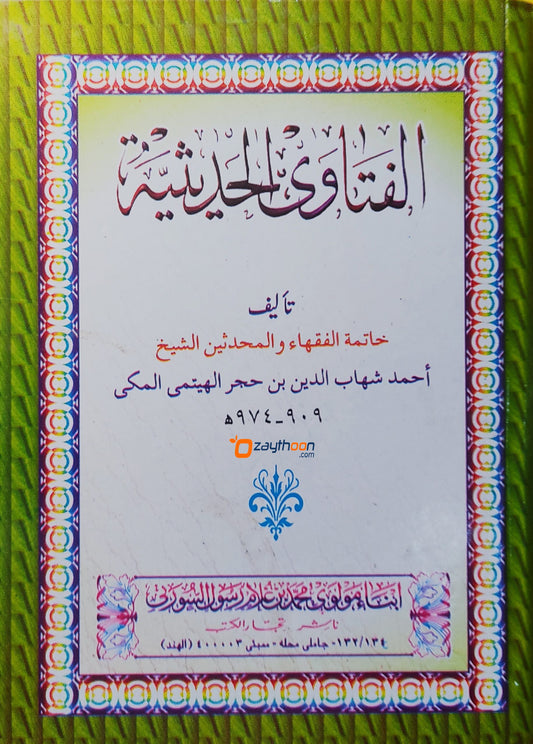 الفتاوى الحديثية
تأليف
خاتمة الفقهاء والمحدثين الشيخ
أحمد شهاب الدين بن حجر الهيتمى المكى
٩٠٩-٩٧٤ه
Ozaythoon
.com
ابناء مولوى محمد بن غلام رسول السورتى
ناشر و تجار الكتب
١٣٢/١٣٤- جاملى محله - ممبئى ٤٠٠٠٠٣ (الهند)